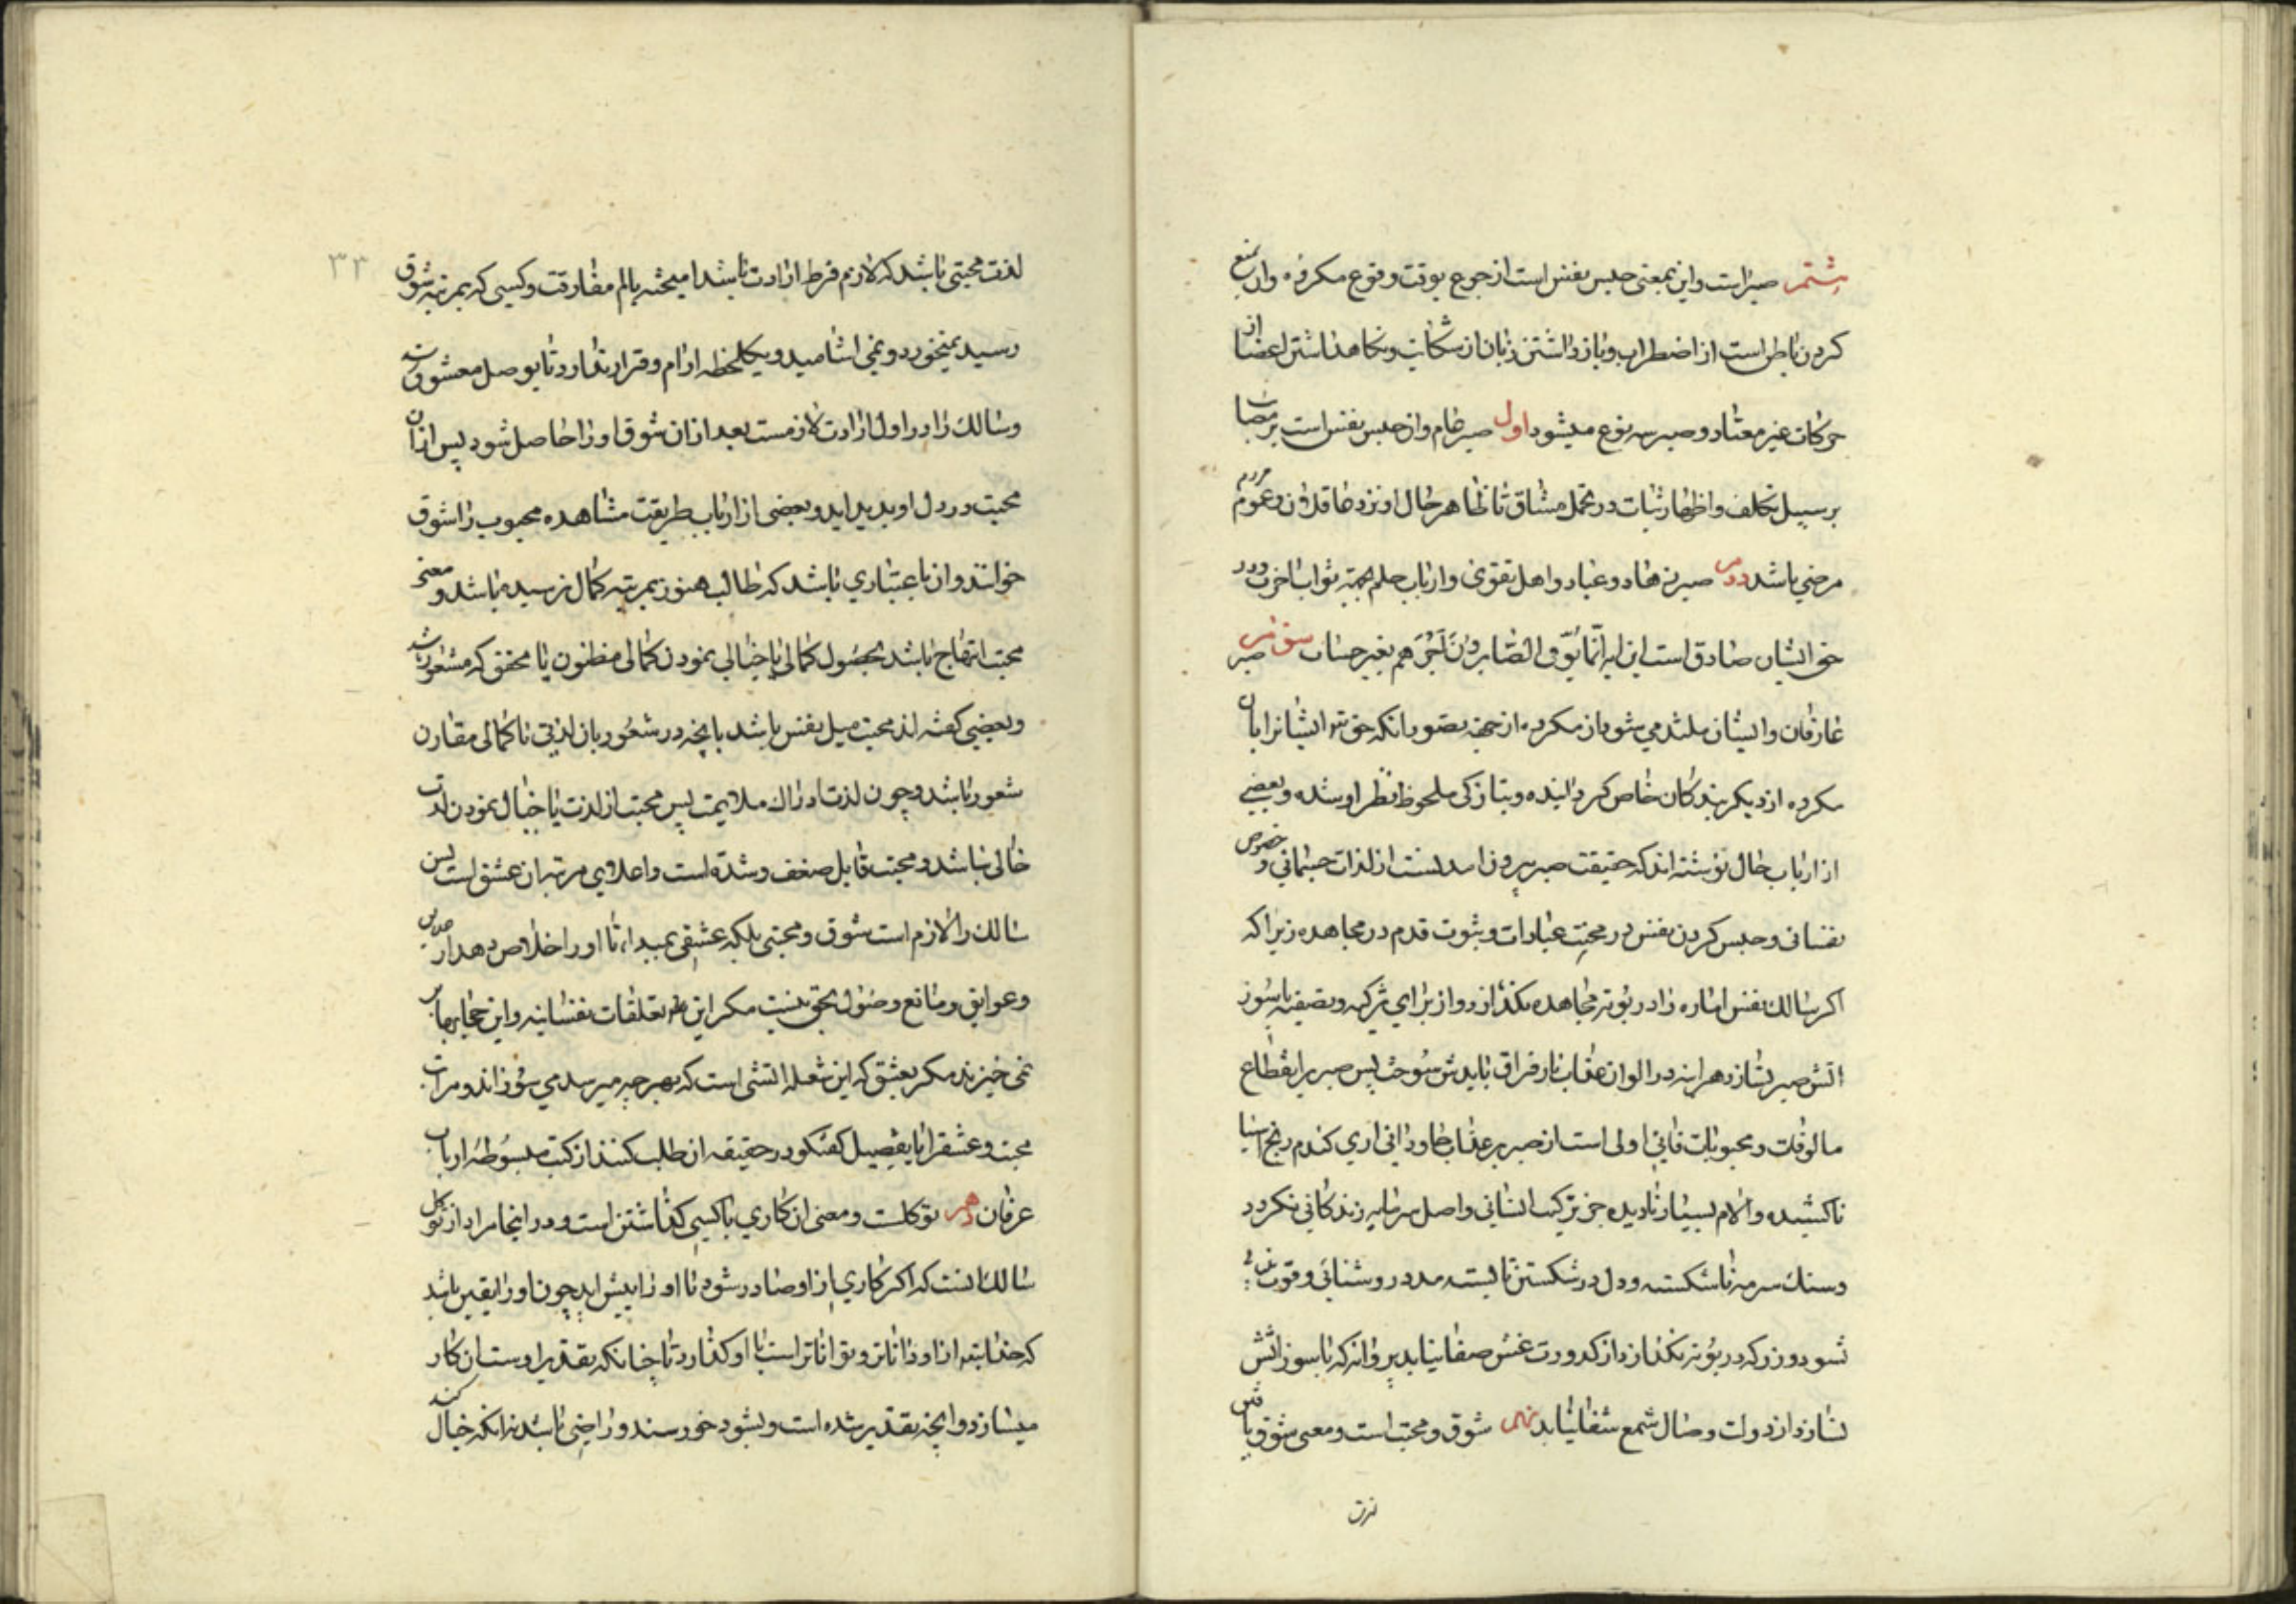 هشتم صبر است و این بمعنی حبس نفس است از جزع بوقت وقوع مکروه و ان منع
کردن باطن است از اضطراب و باز داشتن زبان از شکایت و نکاهداشتن اعضا از
حرکات غیر معتاد و صبر سه نوع میشود اول صبر عام و ان حبس نفس است بر
بر سبیل تکلف و اظهار ثبات در تحمل مشاق تا ظاهر حال او نزد عاقلان و عموم مردم
مرضی باشد دوم صبر زهاد و عباد و اهل تقوی و ارباب حلم بجهة ثواب اخرت و در
حق ایشان صادق است این ایه انما یوفی الصابرون اجرهم بغیر حساب سوم صبر
عارفان و ایشان ملتذ می شوند از مکروه از جهة تصور انکه حق تع ایشانرا بان
مکروه از دیکر بندکان خاص کردانیده و بتازکی ملحوظ نظر او شده و بعضی
از ارباب حال نوشته اند که حقیقت صبر بیرون امدنست از لذات جسمانی و خصوص
نفسانی و حبس کردن نفس در محبت عبادات و ثبوت قدم در مجاهده زیرا که
اکر سالک نفس اماره را در بوته مجاهده نکدازد و از برای تزکیه و تصفیه با سوز
اتش صبر نسازد هراینه در الوان عذاب نار فراق بایدش سوخت پس صبر بر انقطاع
مالوفات و محبوبات فانی اولی است از صبر بر عذاب جاودانی اری کندم رنج اسیا
ناکشیده و الام بسیار نادیده جز ترکیب انسانی و اصل سرمایه زندکانی نکردد
و سنک سرمه ناشکسته و دل در شکستن نابسته مدد روشنائی و قوت
نشود و زر که در بوته نکدازد از کدورت غش صفا نیابد پروانه که با سوز اتش
نسازد از دولت وصال شمع شفا نیابد نهم شوق و محبت است و معنی شوق یافتن
لذت
۳۳
لذت محبتی باشد که لازم فرط ارادت باشد امیخته بالم مفارقت و کسی که بمرتبه شوق
رسید نمیخورد و نمی اشامید و یکلحظه ارام و قرار ندارد تا بوصل معشوق
و سالک را در اول ارادت لازمست بعد از ان شوق او را حاصل شود پس از ان
محبت در دل او پدید اید و بعضی از ارباب طریقت مشاهده محبوب را شوق
خوانند و ان باعتباری باشد که طالب هنوز بمرتبه کمال نرسیده باشد و معنی
محبت ابتهاج باشد بحصول کمالی یا خیالی نمودن کمالی مظنون یا محقق که مشعور
و بعضی کفته اند محبت میل نفس باشد بانچه در شعور بان لذتی با کمالی مقارن
شعور باشد و چون لذت ادراک ملایمت پس محبت از لذت یا خیال نمودن لذت
خالی نباشد و محبت قابل ضعف و شدة است و اعلای مرتبه ان عشق است پس
سالک را لازم است شوق و محبتی بلکه عشقی بمبداء تا او را خلاص دهد از
و عوایق و مانع وصول بحق نیست مکر این تعلقات نفسانیه و این حجابها بر
نمی خیزند مکر بعشق که این شعله اتشی است که بهر چه میرسد می سوزاند و مراتب
محبت و عشقرا با تفصیل کفتکو در حقیقه ان طلب کنند از کتب مبسوطه ارباب
عرفان دهم توکلست و معنی ان کاری با کسی کذاشتن است و در اینجا مراد از توکل
سالک انست که اکر کاری از او صادر شود تا او را پیش اید چون او را یقین باشد
که خدایتع از او داناتر و تواناتر است با او کذارد تا چنانکه تقدیر اوست ان کار
میسازد و انچه تقدیر شده است و بشود خورسند و راضی باشد نه انکه خیال کند